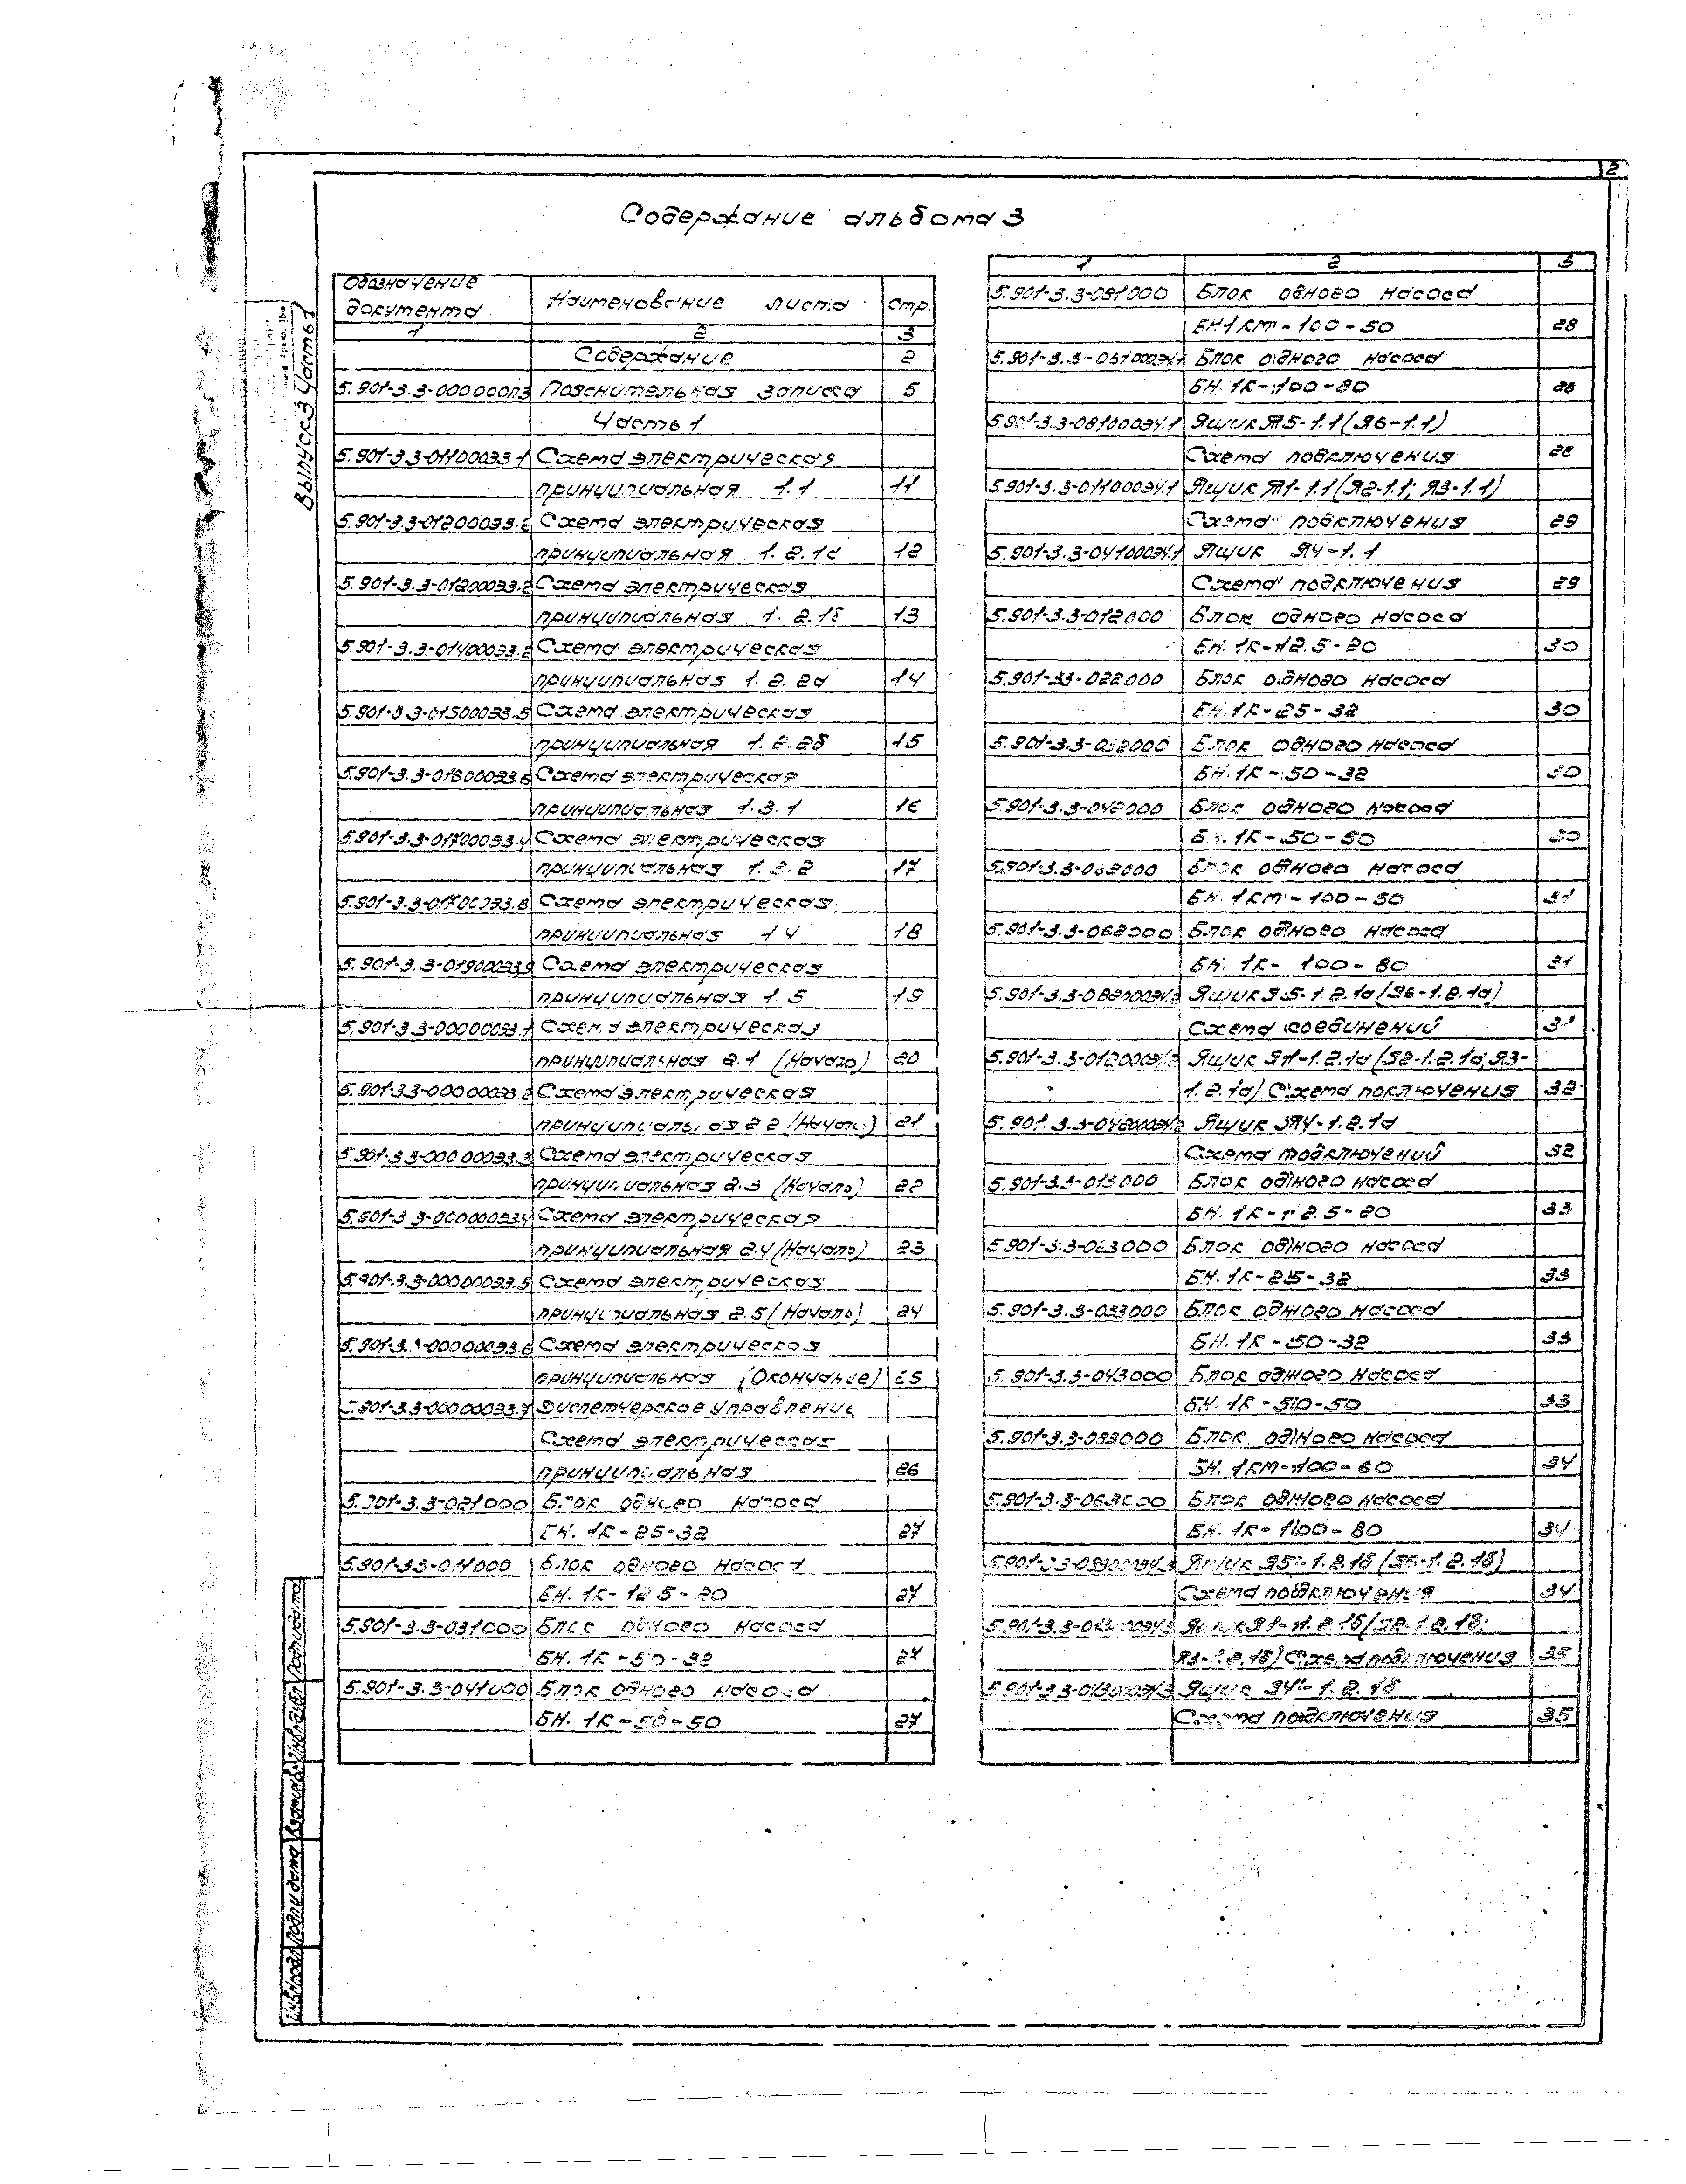 2
Содержание альбома 3
Выпуск 3 Часть 1
Обозначение документа Наименование листа Стр.
1 2 3
Содержание 2
5.901-3.3-000000ПЗ Пояснительная записка 5
Часть 1
5.901-3.3-011000Э3.1 Схема электрическая
принципиальная 1.1 11
5.901-3.3-012000Э3.2 Схема электрическая
принципиальная 1.2.1а 12
5.901-3.3-012000Э3.2 Схема электрическая
принципиальная 1.2.1б 13
5.901-3.3-014000Э3.2 Схема электрическая
принципиальная 1.2.2а 14
5.901-3.3-015000Э3.5 Схема электрическая
принципиальная 1.2.2б 15
5.901-3.3-016000Э3.6 Схема электрическая
принципиальная 1.3.1 16
5.901-3.3-017000Э3.4 Схема электрическая
принципиальная 1.3.2 17
Схема электрическая
принципиальная 1.4 18
5.901-3.3-019000Э3.9 Схема электрическая
принципиальная 1.5 19
5.901-3.3-000000Э3.1 Схема электрическая
принципиальная 2.1 (Начало) 20
5.901-3.3-000000Э3.2 Схема электрическая
принципиальная 2.2 (Начало) 21
5.901-3.3-000000Э3.3 Схема электрическая
принципиальная 2.3 (Начало) 22
5.901-3.3-000000Э3.4 Схема электрическая
принципиальная 2.4 (Начало) 23
5.901-3.3-000000Э3.5 Схема электрическая
принципиальная 2.5 (Начало) 24
5.901-3.3-000000Э3.6 Схема электрическая
принципиальная (Окончание) 25
5.901-3.3-000000Э3.7 Диспетчерское управление
Схема электрическая
принципиальная 26
5.901-3.3-021000 Блок одного насоса
БН. 1К-25-32 27
5.901-3.3-011000 Блок одного насоса
БН. 1К-12.5-20 27
5.901-3.3-031000 Блок одного насоса
БН. 1К-50-32 27
5.901-3.3-041000 Блок одного насоса
БН. 1К-50-50 27
1 2 3
5.901-3.3-081000 Блок одного насоса
БН1КМ-100-50 28
5.901-3.3-061000Э4.1 Блок одного насоса
БН. 1К-100-80 28
5.901-3.3-081000Э4.1 Ящик Я5-1.1 (Я6-1.1)
Схема подключения 28
5.901-3.3-011000Э4.1 Ящик Я1-1.1 (Я2-1.1; Я3-1.1)
Схема подключения 29
5.901-3.3-041000Э4.1 Ящик Я4-1.1
Схема подключения 29
5.901-3.3-012000 Блок одного насоса
БН. 1К-12.5-20 30
5.901-33-022000 Блок одного насоса
БН. 1К-25-32 30
5.901-3.3-032000 Блок одного насоса
БН. 1К-50-32 30
5.901-3.3-042000 Блок одного насоса
БН. 1К-50-50 30
Блок одного насоса
БН. 1КМ-100-50 31
5.901-3.3-062000 Блок одного насоса
БН. 1К-100-80 31
5.901-3.3-082000Э4.2 Ящик Я5-1.2.1а (Я6-1.2.1а)
Схема соединений 31
5.901-3.3-012000Э4.2 Ящик Я1-1.2.1а (Я2-1.2.1а, Я3-
1.2.1а) Схема поключения 32
5.901-3.3-042000Э4.2 Ящик Я4-1.2.1а
Схема подключений 32
5.901-3.3-013000 Блок одного насоса
БН. 1К-12.5-20 33
5.901-3.3-023000 Блок одного насоса
БН. 1К-25-32 33
5.901-3.3-033000 Блок одного насоса
БН. 1К-50-32 33
5.901-3.3-043000 Блок одного насоса
БН. 1К-50-50 33
5.901-3.3-083000 Блок одного насоса
БН. 1КМ-100-60 34
5.901-3.3-063000 Блок одного насоса
БН. 1К-100-80 34
5.901-3.3-083000Э4.3 Ящик Я5-1.2.1б (Я6-1.2.1б)
Схема подключения 34
5.901-3.3-013000Э4.3 Ящик Я1-1.2.1б (Я2-1.2.1б;
Я3-1.2.1б) Схема подключения 35
5.901-3.3-043000Э4.3 Ящик Я4-1.2.1б
Схема подключения 35
Инв.№подл. Подпись и дата Взам.инв.№ Инв.№дубл. Подпись и дата